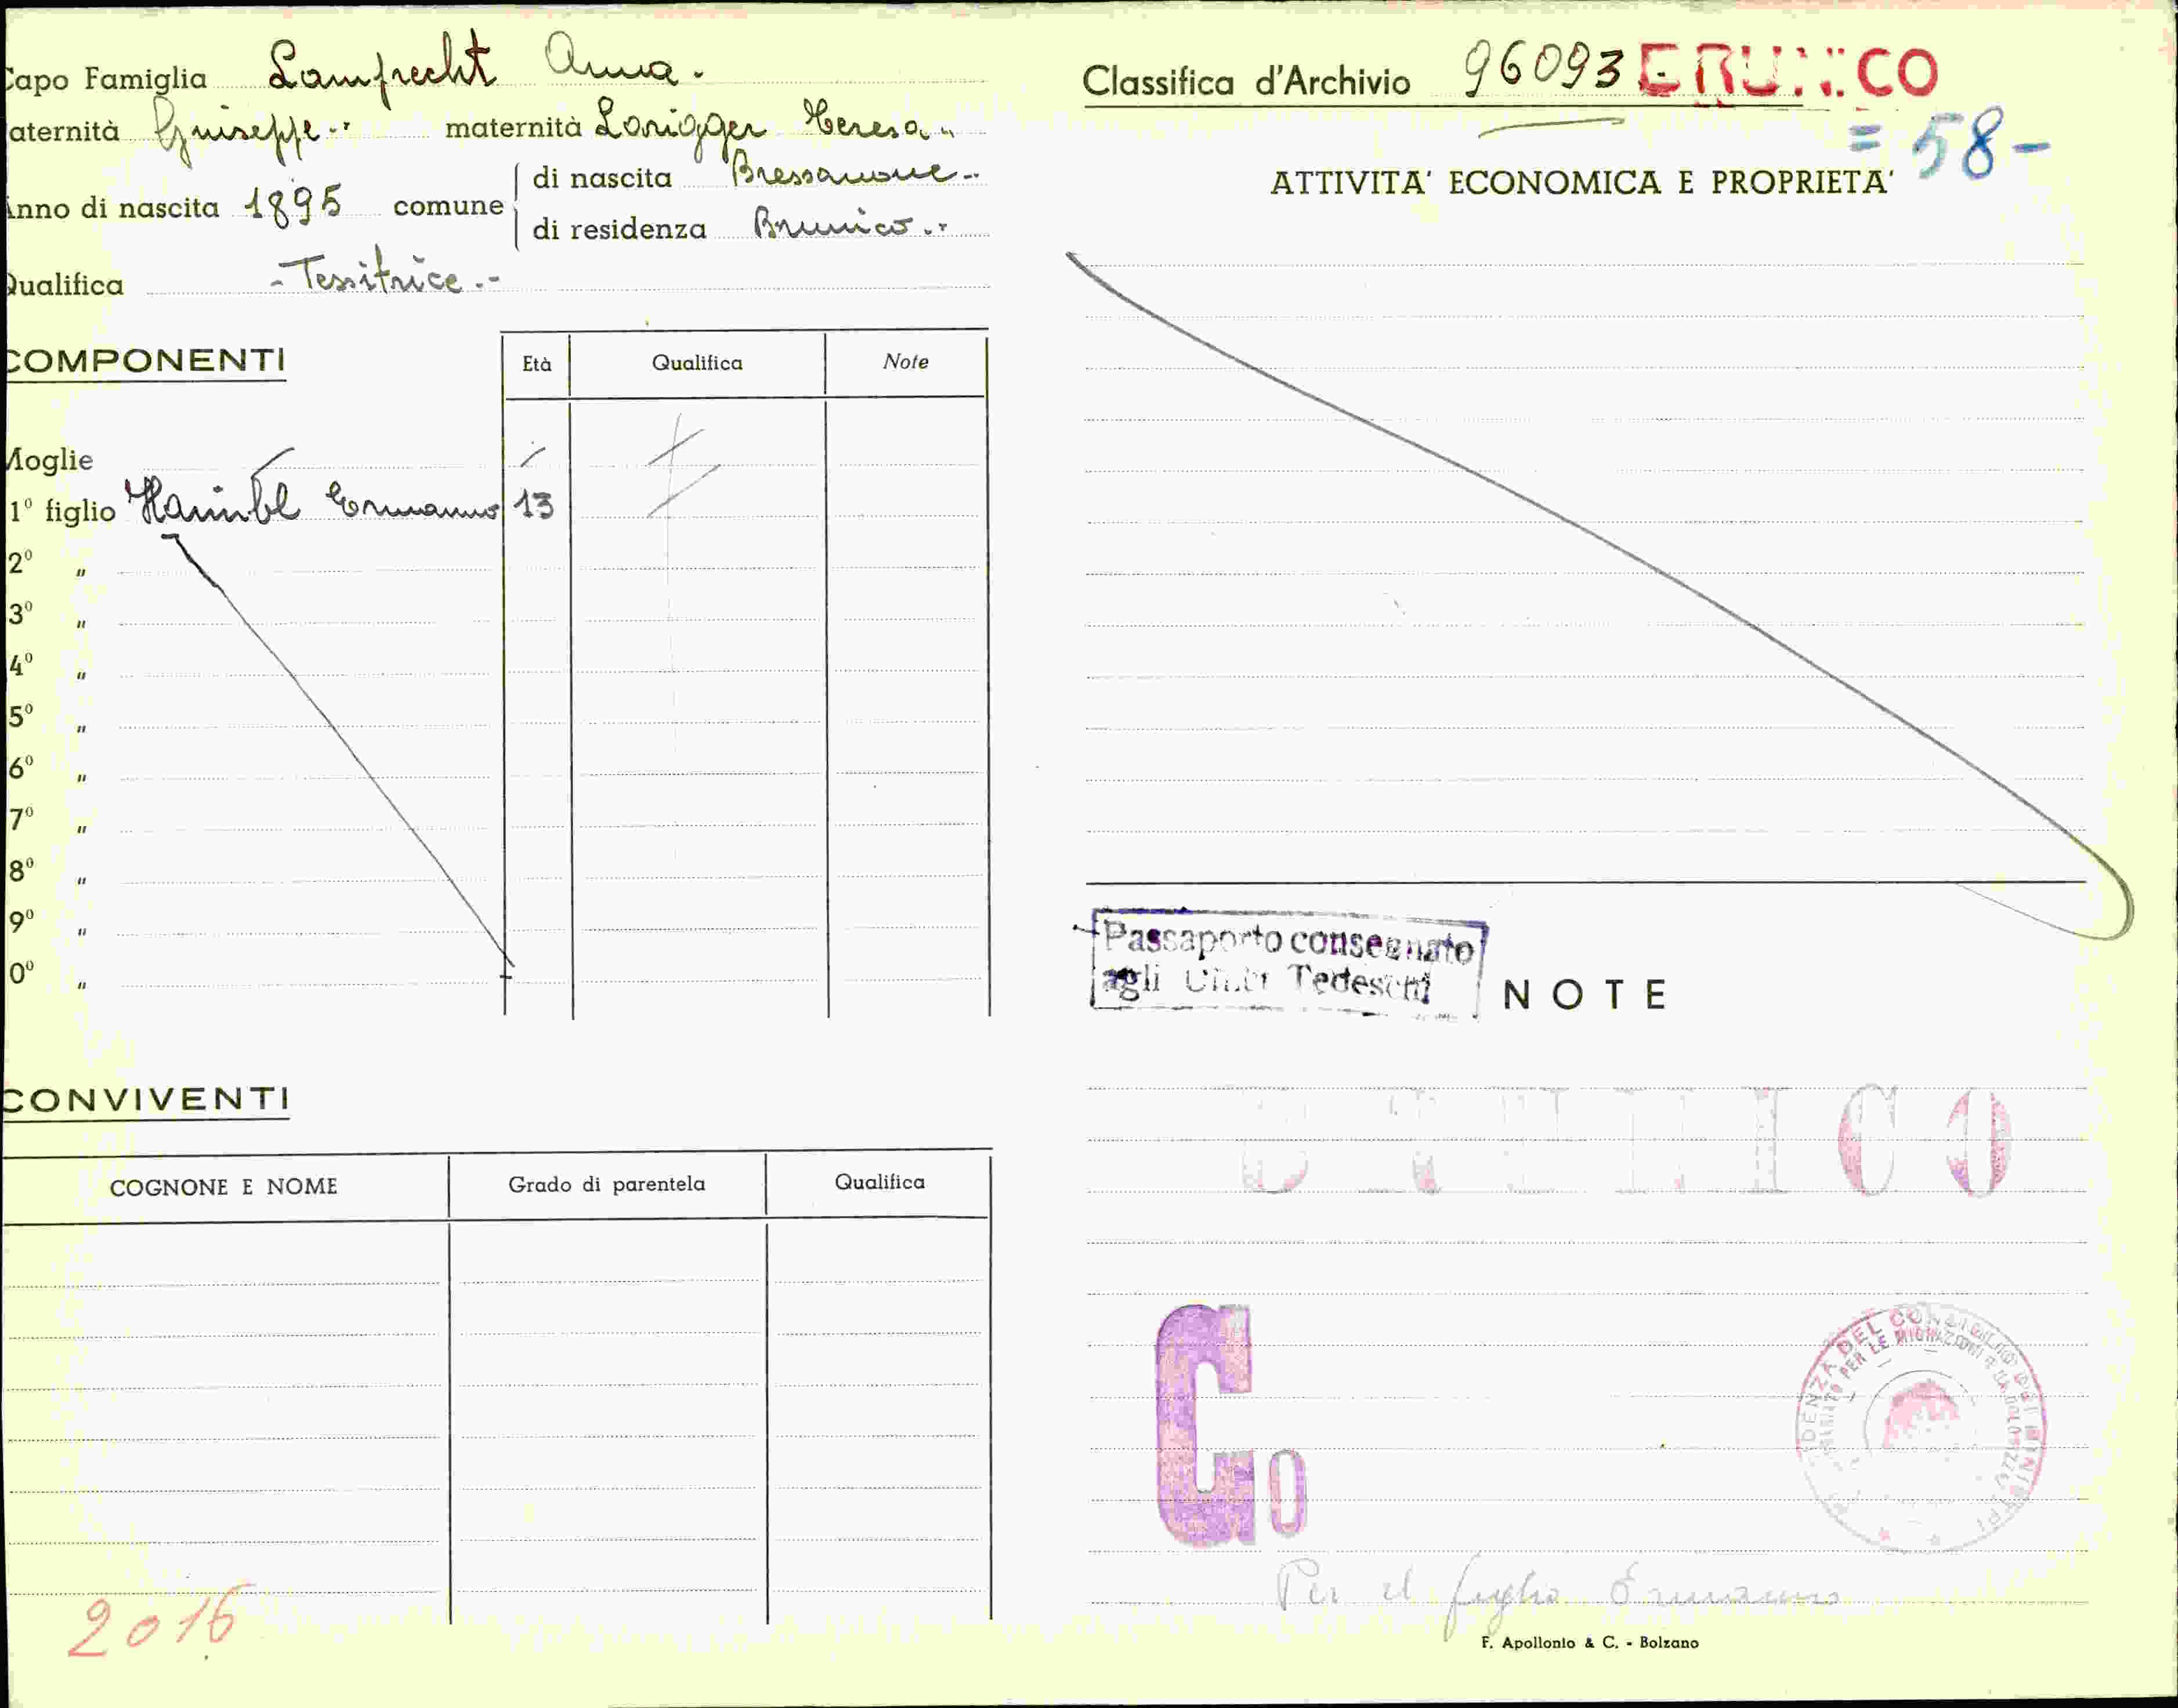 Capo Famiglia Lamprecht Anna.
aternità Giuseppe maternità Lorigger Teresa
Anno di nascita 1895 comune di nascita Bressanone
di residenza Brunico
Qualifica - Tessitrice.-
COMPONENTI Età Qualifica Note
Moglie
1° figlio Ermanno 13
2° "
3° "
4° "
5° "
6° "
7° "
8° "
9° "
0° "
CONVIVENTI
COGNONE E NOME Grado di parentela Qualifica
2016
Classifica d'Archivio 96093 BRUNICO
= 58 -
ATTIVITA' ECONOMICA E PROPRIETA'
Passaporto consegnato
agli Uffici Tedeschi
NOTE
BRUNICO
Co
Per il figlio Ermanno
F. Apollonio & C. - Bolzano